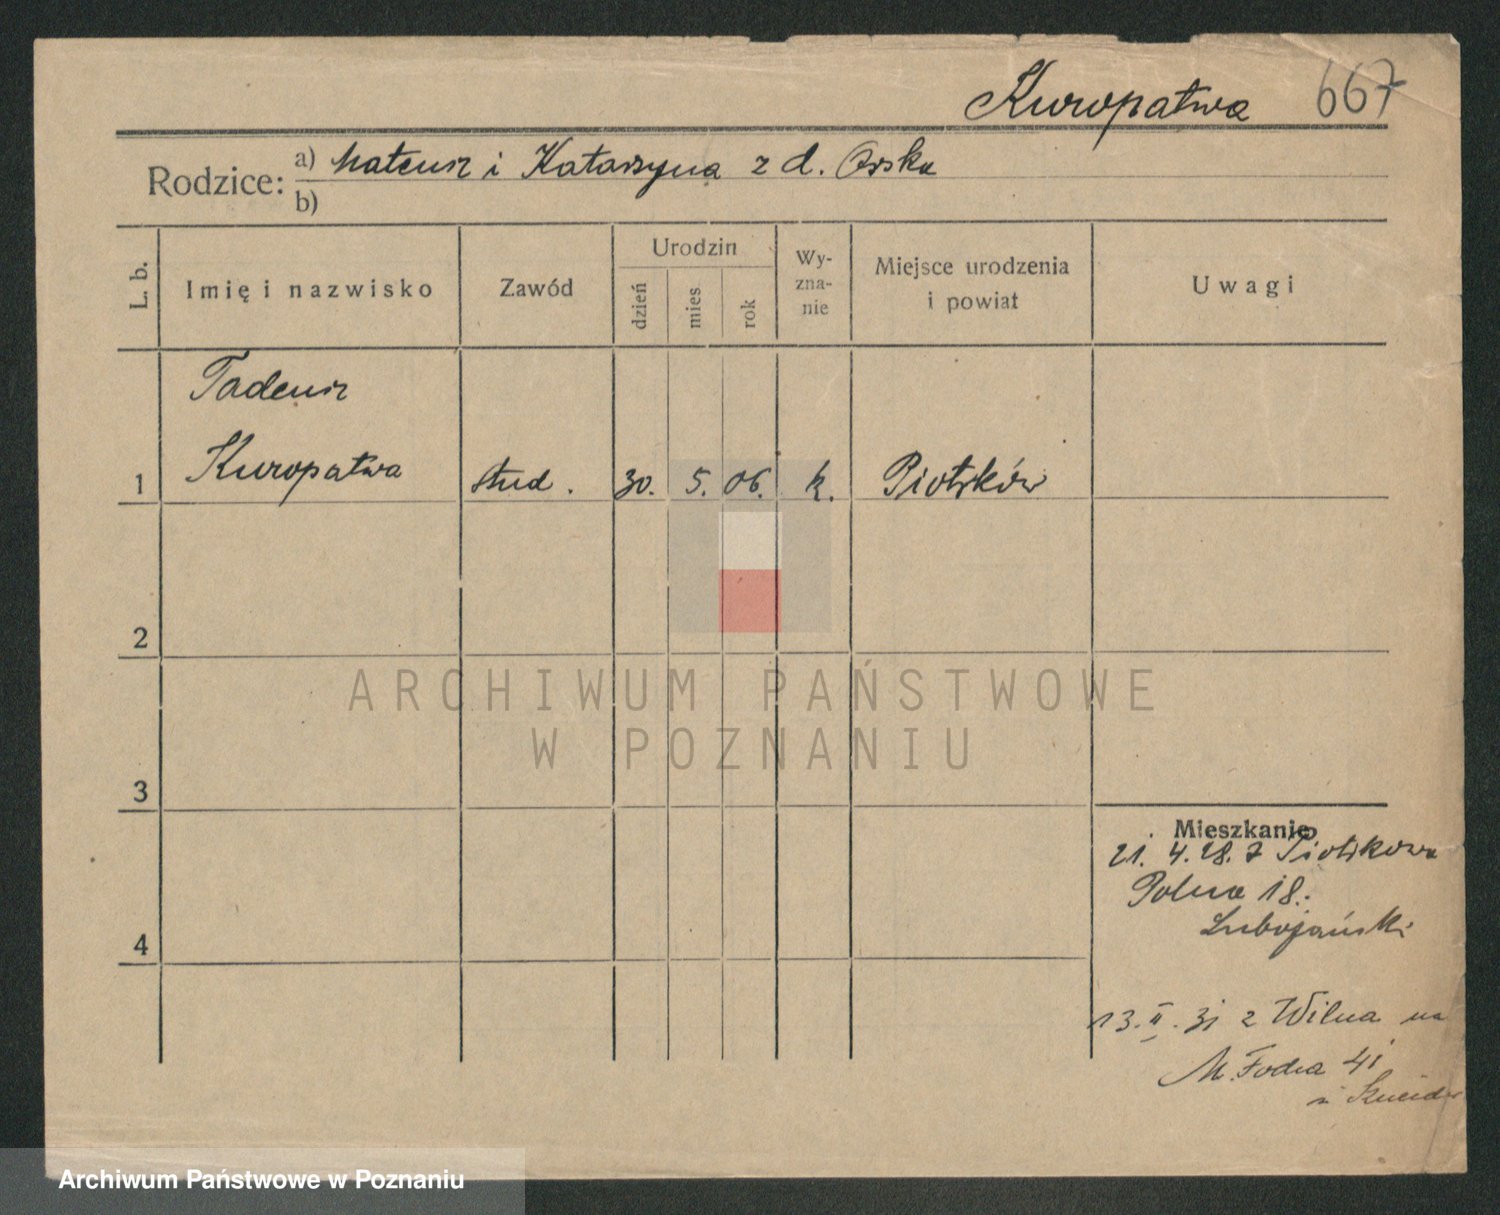 Kuropatwa 667
Rodzice: a) Mateusz i Katarzyna z d. Orska
b)
L. b. Imię i nazwisko Zawód Urodzin dzień mies. rok Wyznanie Miejsce urodzenia i powiat Uwagi
Tadeusz
1 Kuropatwa stud. 30. 5. 06. k. Piotrków
2
ARCHIWUM PAŃSTWOWE
W POZNANIU
3
Mieszkanie
21. 4. 28. z Piotrkowa
Polna 18.
Lubojański
4
13. II. 31 z Wilna na
M. Focha 41
Archiwum Państwowe w Poznaniu